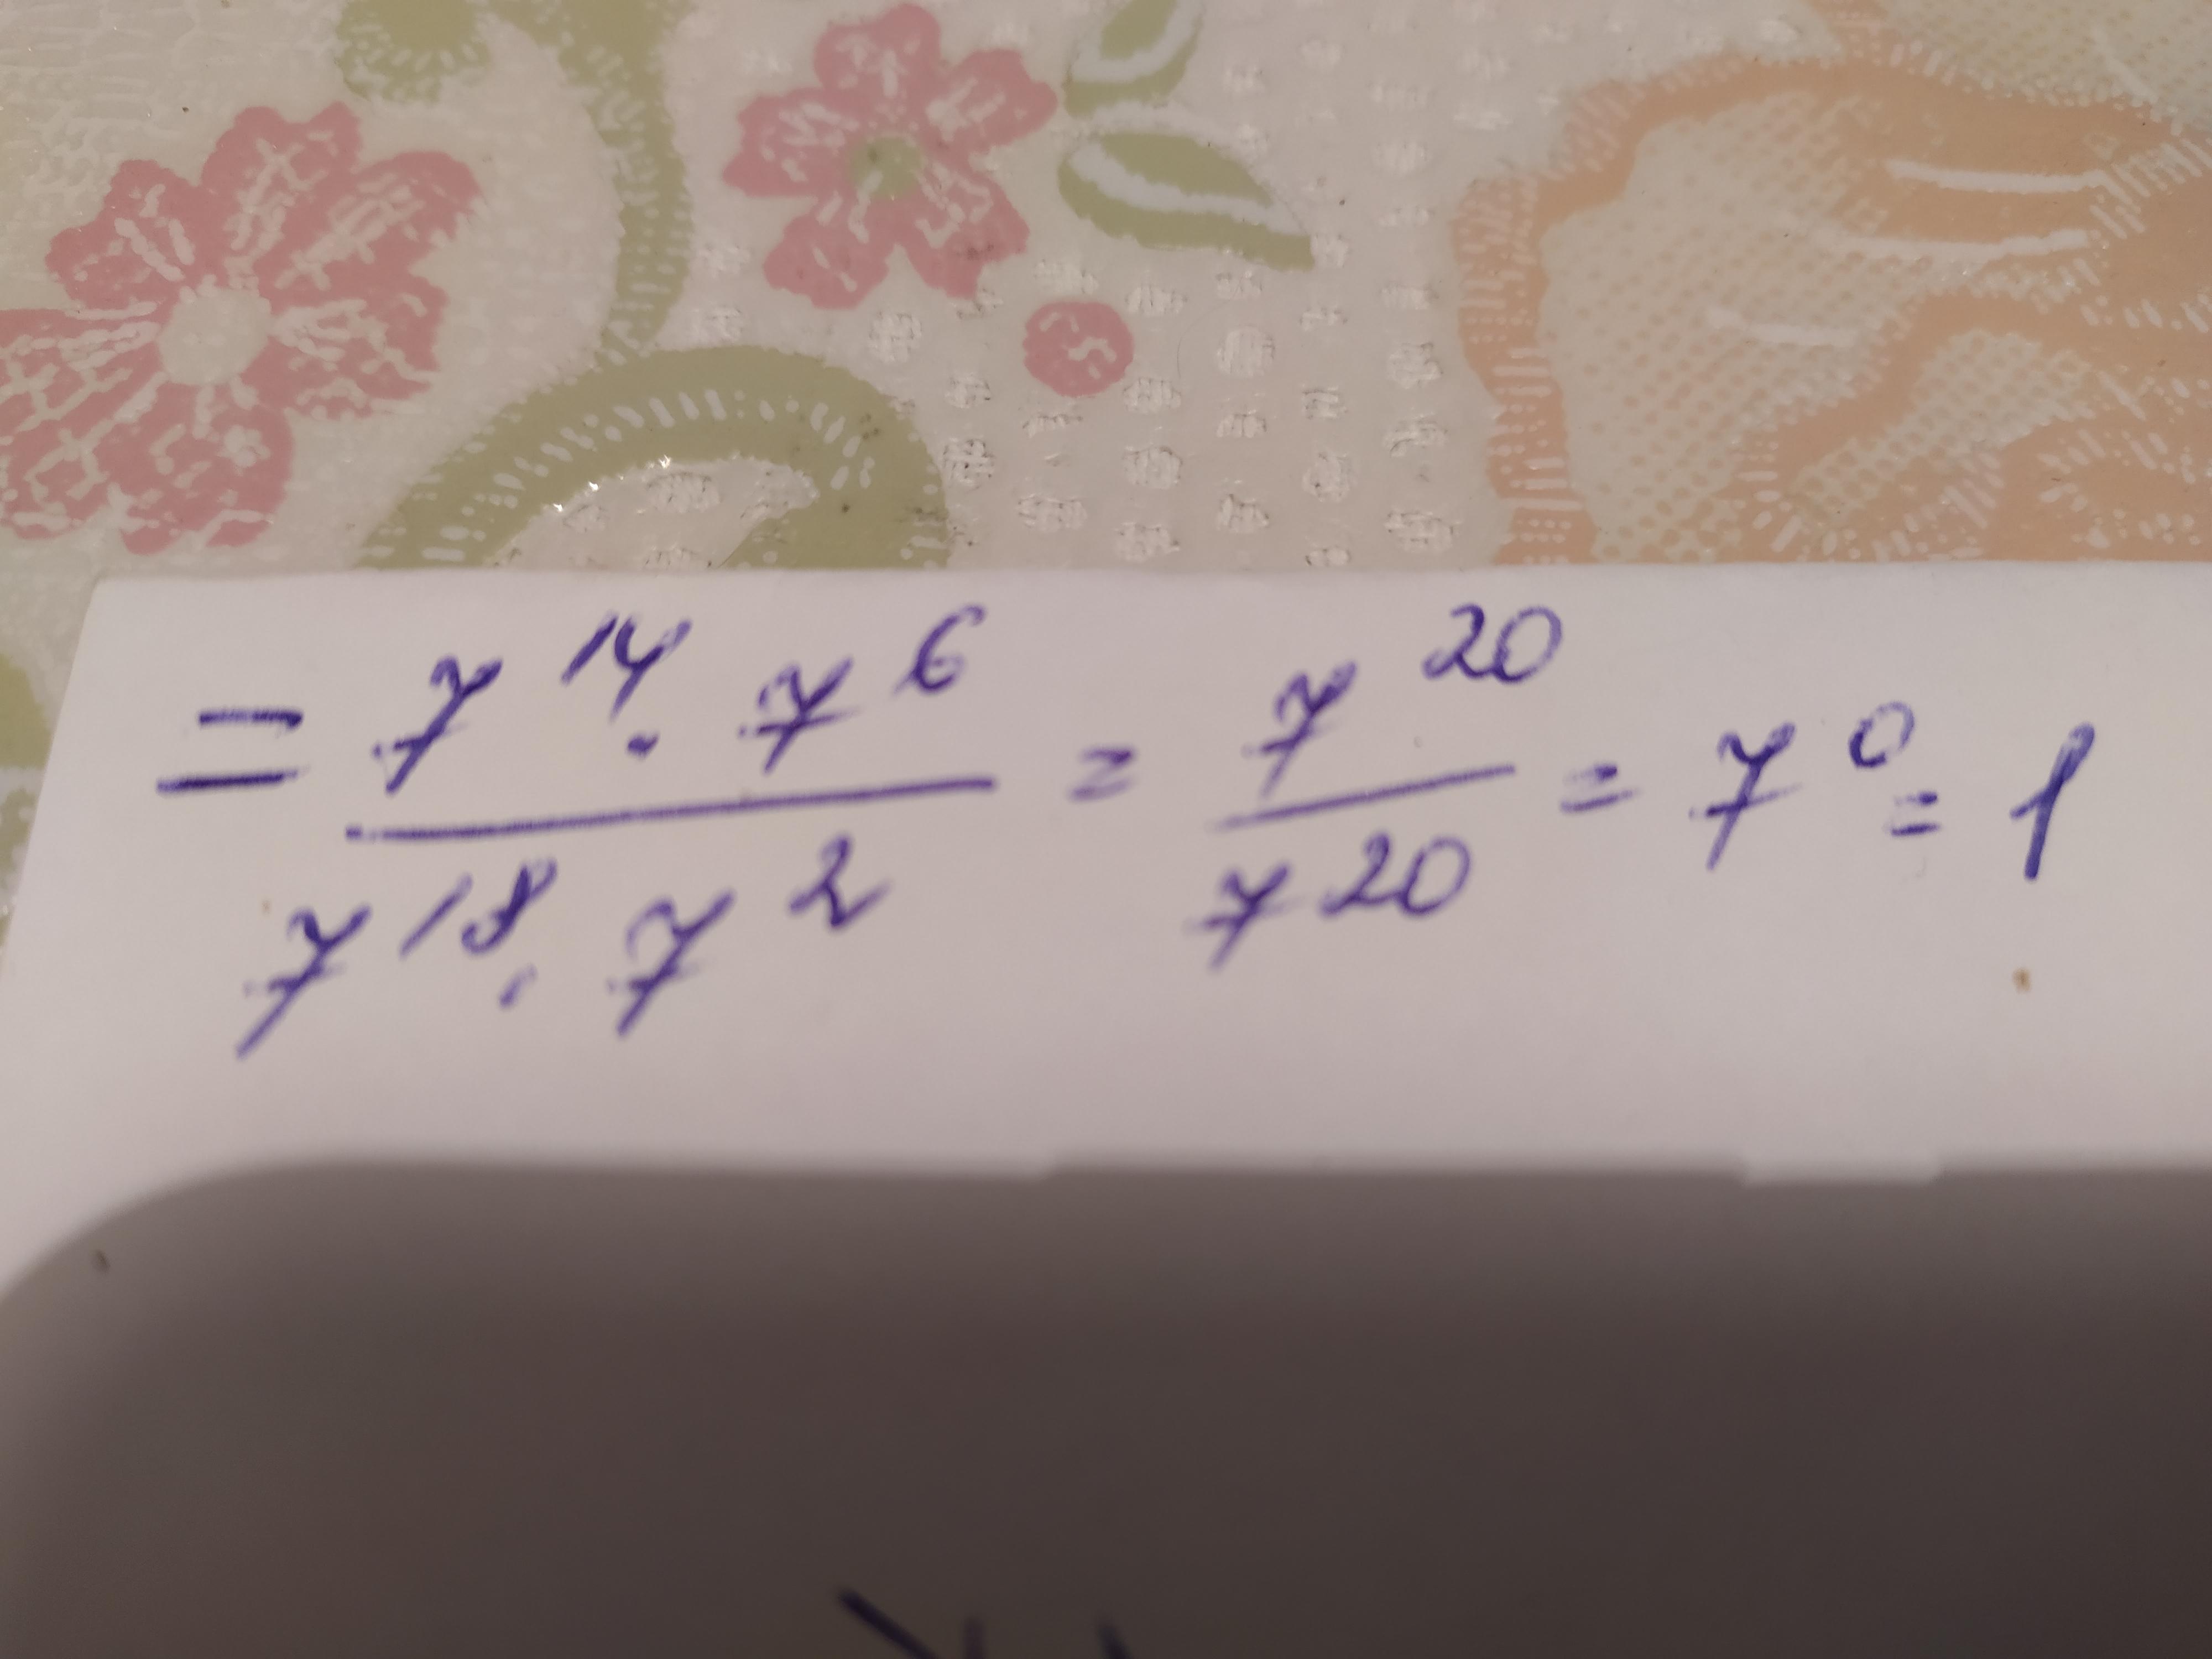 = 7^14 · 7^6 / 7^18 · 7^2 = 7^20 / 7^20 = 7^0 = 1